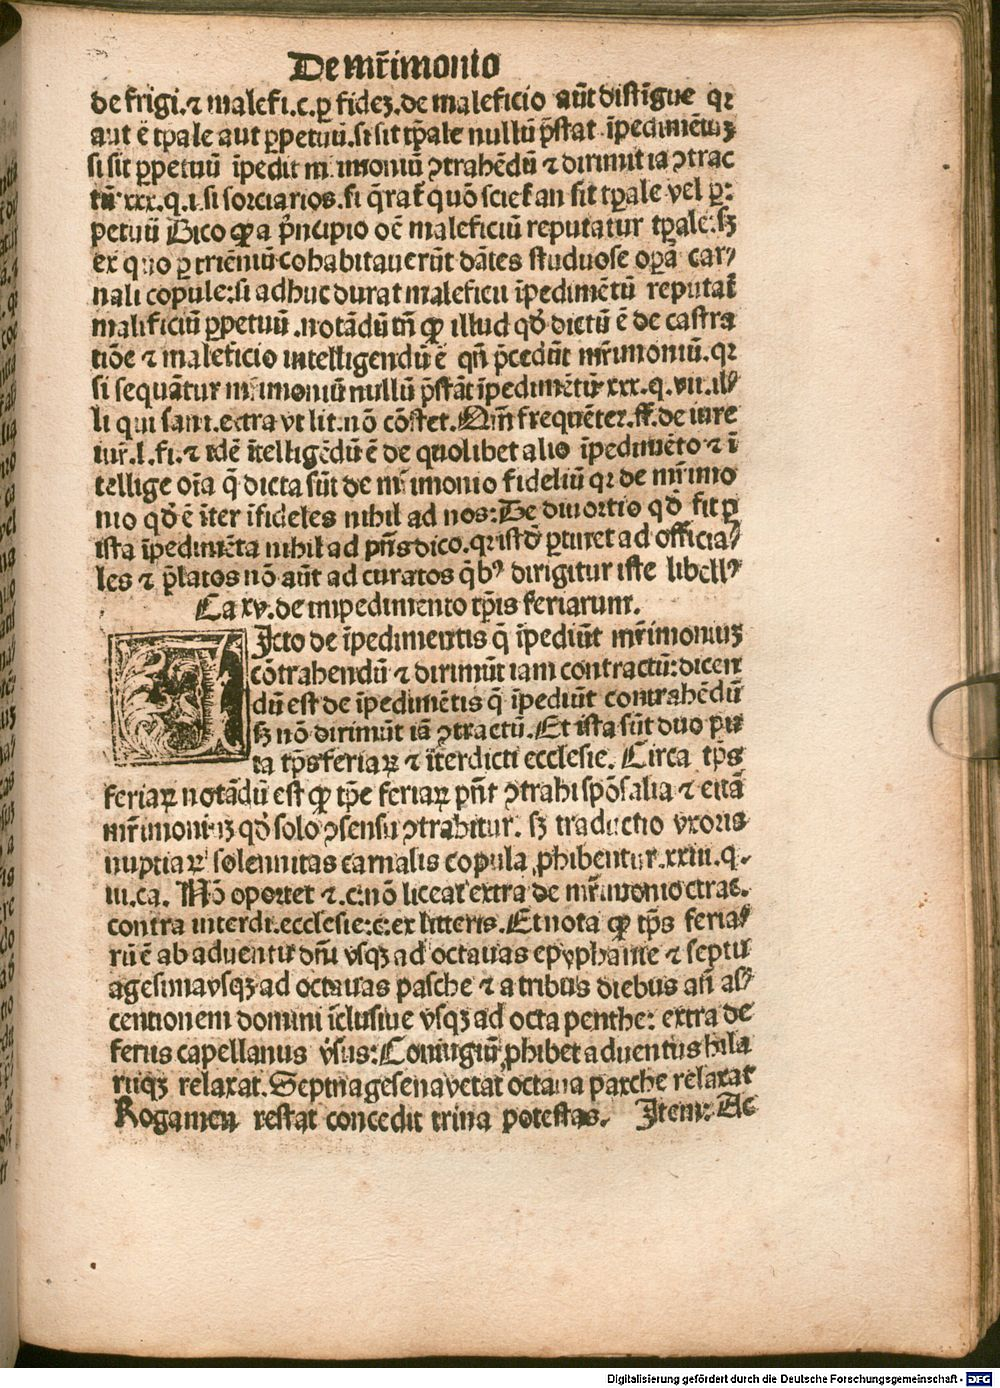 De mr̄imonio
de frigi.⁊ malefi.c.ꝑ fidez.de maleficio aūt distīgue qꝛ
aut ē tꝑale aut ꝑpetuū.si sit tꝑale nullū p̄stat īpedimētuꝫ
si sit ꝑpetuū īpedit mr̄imoniū ꝯtrahēdū ⁊ dirimit iā ꝯtrac
tū xxx.q.i.si sorciarios.si q̄rat᷑ quō sciet᷑ an sit tꝑale vel ꝑ:
petuū Dico ꝙ a p̄ncipio oē maleficiū reputatur tꝑale:sꝫ
ex quo ꝑ trieniū cohabitauerūt dātes studuose oꝑā car/
nali copule:si adhuc durat maleficiū īpedimētū reputat᷑
malificiū ꝑpetuū.notādū tn̄ ꝙ illud qd̄ dictū ē de castra
tiōe ⁊ maleficio intelligendū ē qn̄ p̄cedūt mr̄imoniū.qꝛ
si sequātur mr̄imoniū nullū p̄stāt īpedimētū xxx.q.vii.il/
li qui sani.extra vt lit.nō cōstet.Qm̄ frequēter.ff.de iure
iur̄.l.fi.⁊ idē ītelligēdū ē de quolibet alio īpedimēto ⁊ ī
tellige oīa q̄ dicta sūt de mr̄imonio fideliū qꝛ de mr̄imo
nio qd̄ ē īter īfideles nihil ad nos:De diuortio qd̄ fit ꝑ
ista īpedimēta nihil ad p̄ns dico.qꝛ istd̄ ꝑtinet ad officia/
les ⁊ p̄latos nō aūt ad curatos q̄bꝰ dirigitur iste libellꝰ
Ca xv.de impedimento tp̄is feriarum.
DIcto de īpedimentis q̄ īpediūt mr̄imoniuꝫ
cōtrahendū ⁊ dirimūt iam contractū:dicen
dū est de īpedimētis q̄ īpediūt contrahēdū
sꝫ nō dirimūt iā ꝯtractū.Et ista sūt duo pu
ta tp̄s feriaꝝ ⁊ īterdicti ecclesie. Circa tp̄s
feriaꝝ notādū est ꝙ tp̄e feriaꝝ pn̄t ꝯtrahi spōsalia ⁊ etiā
mr̄imoniuꝫ qd̄ solo ꝯsensu ꝯtrahitur. sꝫ traductio vxoris
nuptiaꝝ solennitas carnalis copula ꝓhibentur.xxiii.q.
iii.ca. Nō oportet ⁊.c.nō liceat extra de mr̄imonio ctrac.
contra interdi.ecclesie:c:ex litteris.Et nota ꝙ tp̄s feria/
rū ē ab aduentu dn̄i vsqꝫ ad octauas epyphanie ⁊ septu
agesima vsqꝫ ad octauas pasche ⁊ a tribus diebus an̄ as/
centionem domini īclusiue vsqꝫ ad octa penthe: extra de
feriis capellanus v̄sus:Coniugiū ꝓhibet aduentus hila
riuqꝫ relaxat.Septuagesena vetat octaua pasche relaxat
Rogamen restat concedit trina potestas. Item: Ac
Digitalisierung gefördert durch die Deutsche Forschungsgemeinschaft - DFG